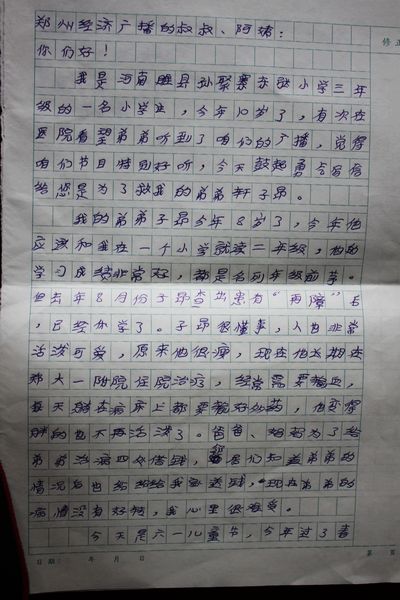 郑州经济广播的叔叔、阿姨：
你们好！
我是河南睢县孙聚寨东张小学三年
级的一名小学生，今年10岁了，有次在
医院看望弟弟听到了咱们的广播，觉得
咱们节目特别好听，今天鼓起勇气写信
给您是为了救我的弟弟轩子昂。
我的弟弟子昂今年8岁了，今年他
应该和我在一个小学就读二年级，他的
学习成绩非常好，都是名列年级前茅。
但去年8月份子昂查出患有"再障"后
，已经休学了。子昂很懂事，人也非常
活泼可爱，原来他很瘦，现在他长期在
郑大一附院住院治疗，经常需要输血，
每天躺在病床上都要输好些药，他变得
胖的也不再活泼了。爸爸、妈妈为了给
弟弟治病四处借钱，邻居们知道弟弟的
情况后也纷纷给我家送钱，现在弟弟的
病情没有好转，我心里很难受。
今天是六一儿童节，今年过了春
修正
日期： 年 月 日 第 页